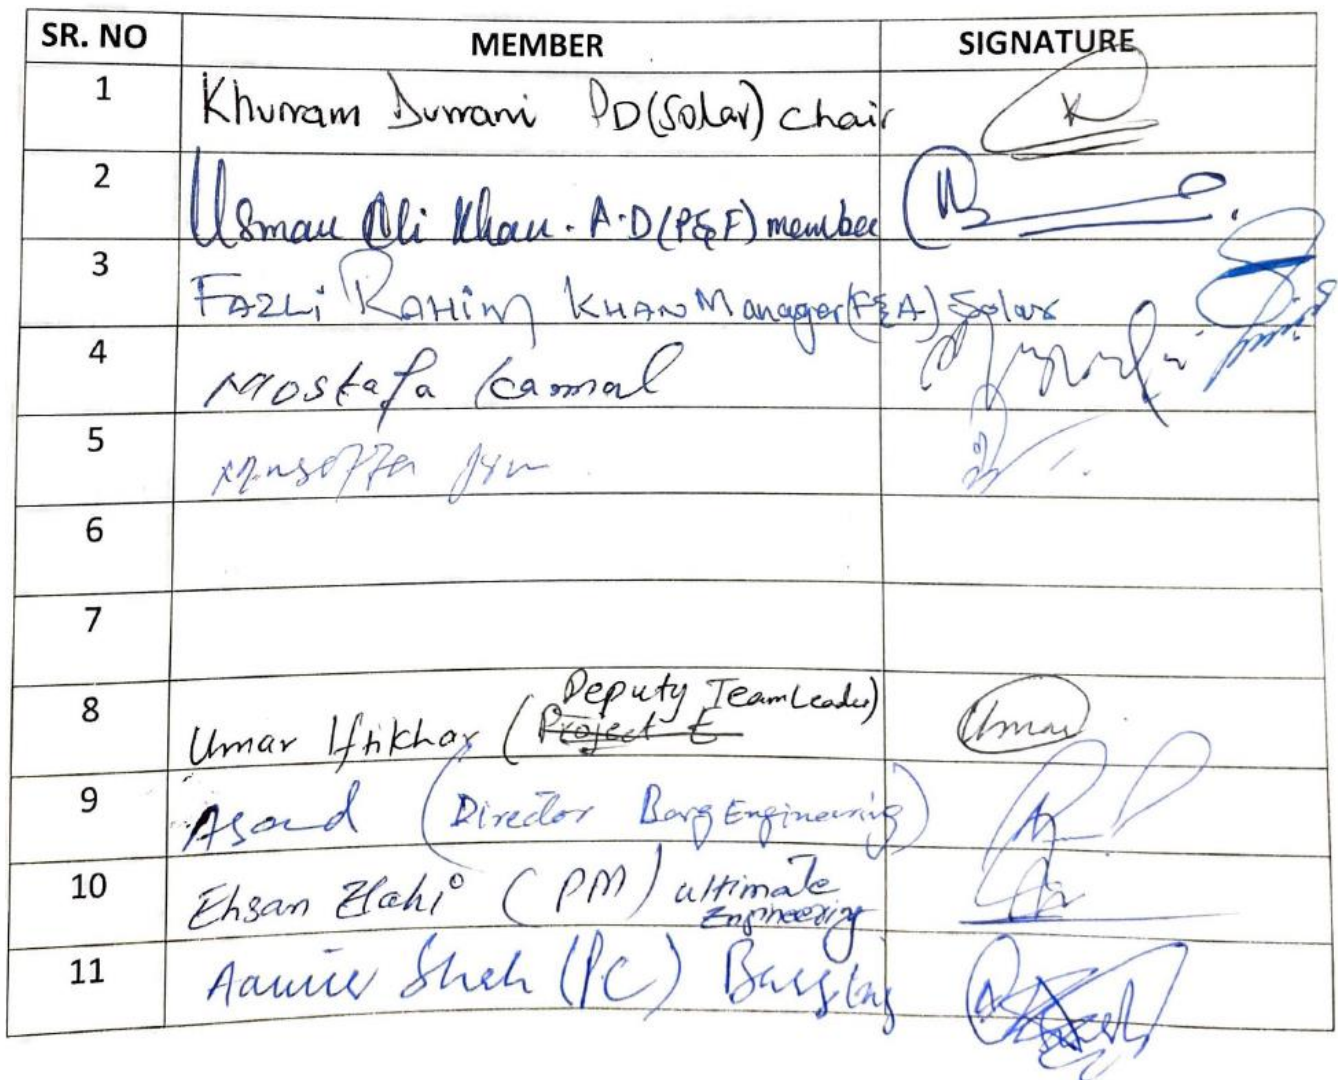 SR. NO MEMBER SIGNATURE
1 Khurram Durrani PD(Solar) chair K
2 Usman Ali Khan. A.D(P&F) member
3 FAZLi RAHiM KHAN Manager(F&A) Solar
4 Mostafa Kamal
5
6
7
8 Umar Iftikhar (Project E Deputy Team Leader) Umar
9 Asad (Director Barq Engineering)
10 Ehsan Elahi (PM) ultimate Engineering
11 Aamir Shah (PC) Barq Eng